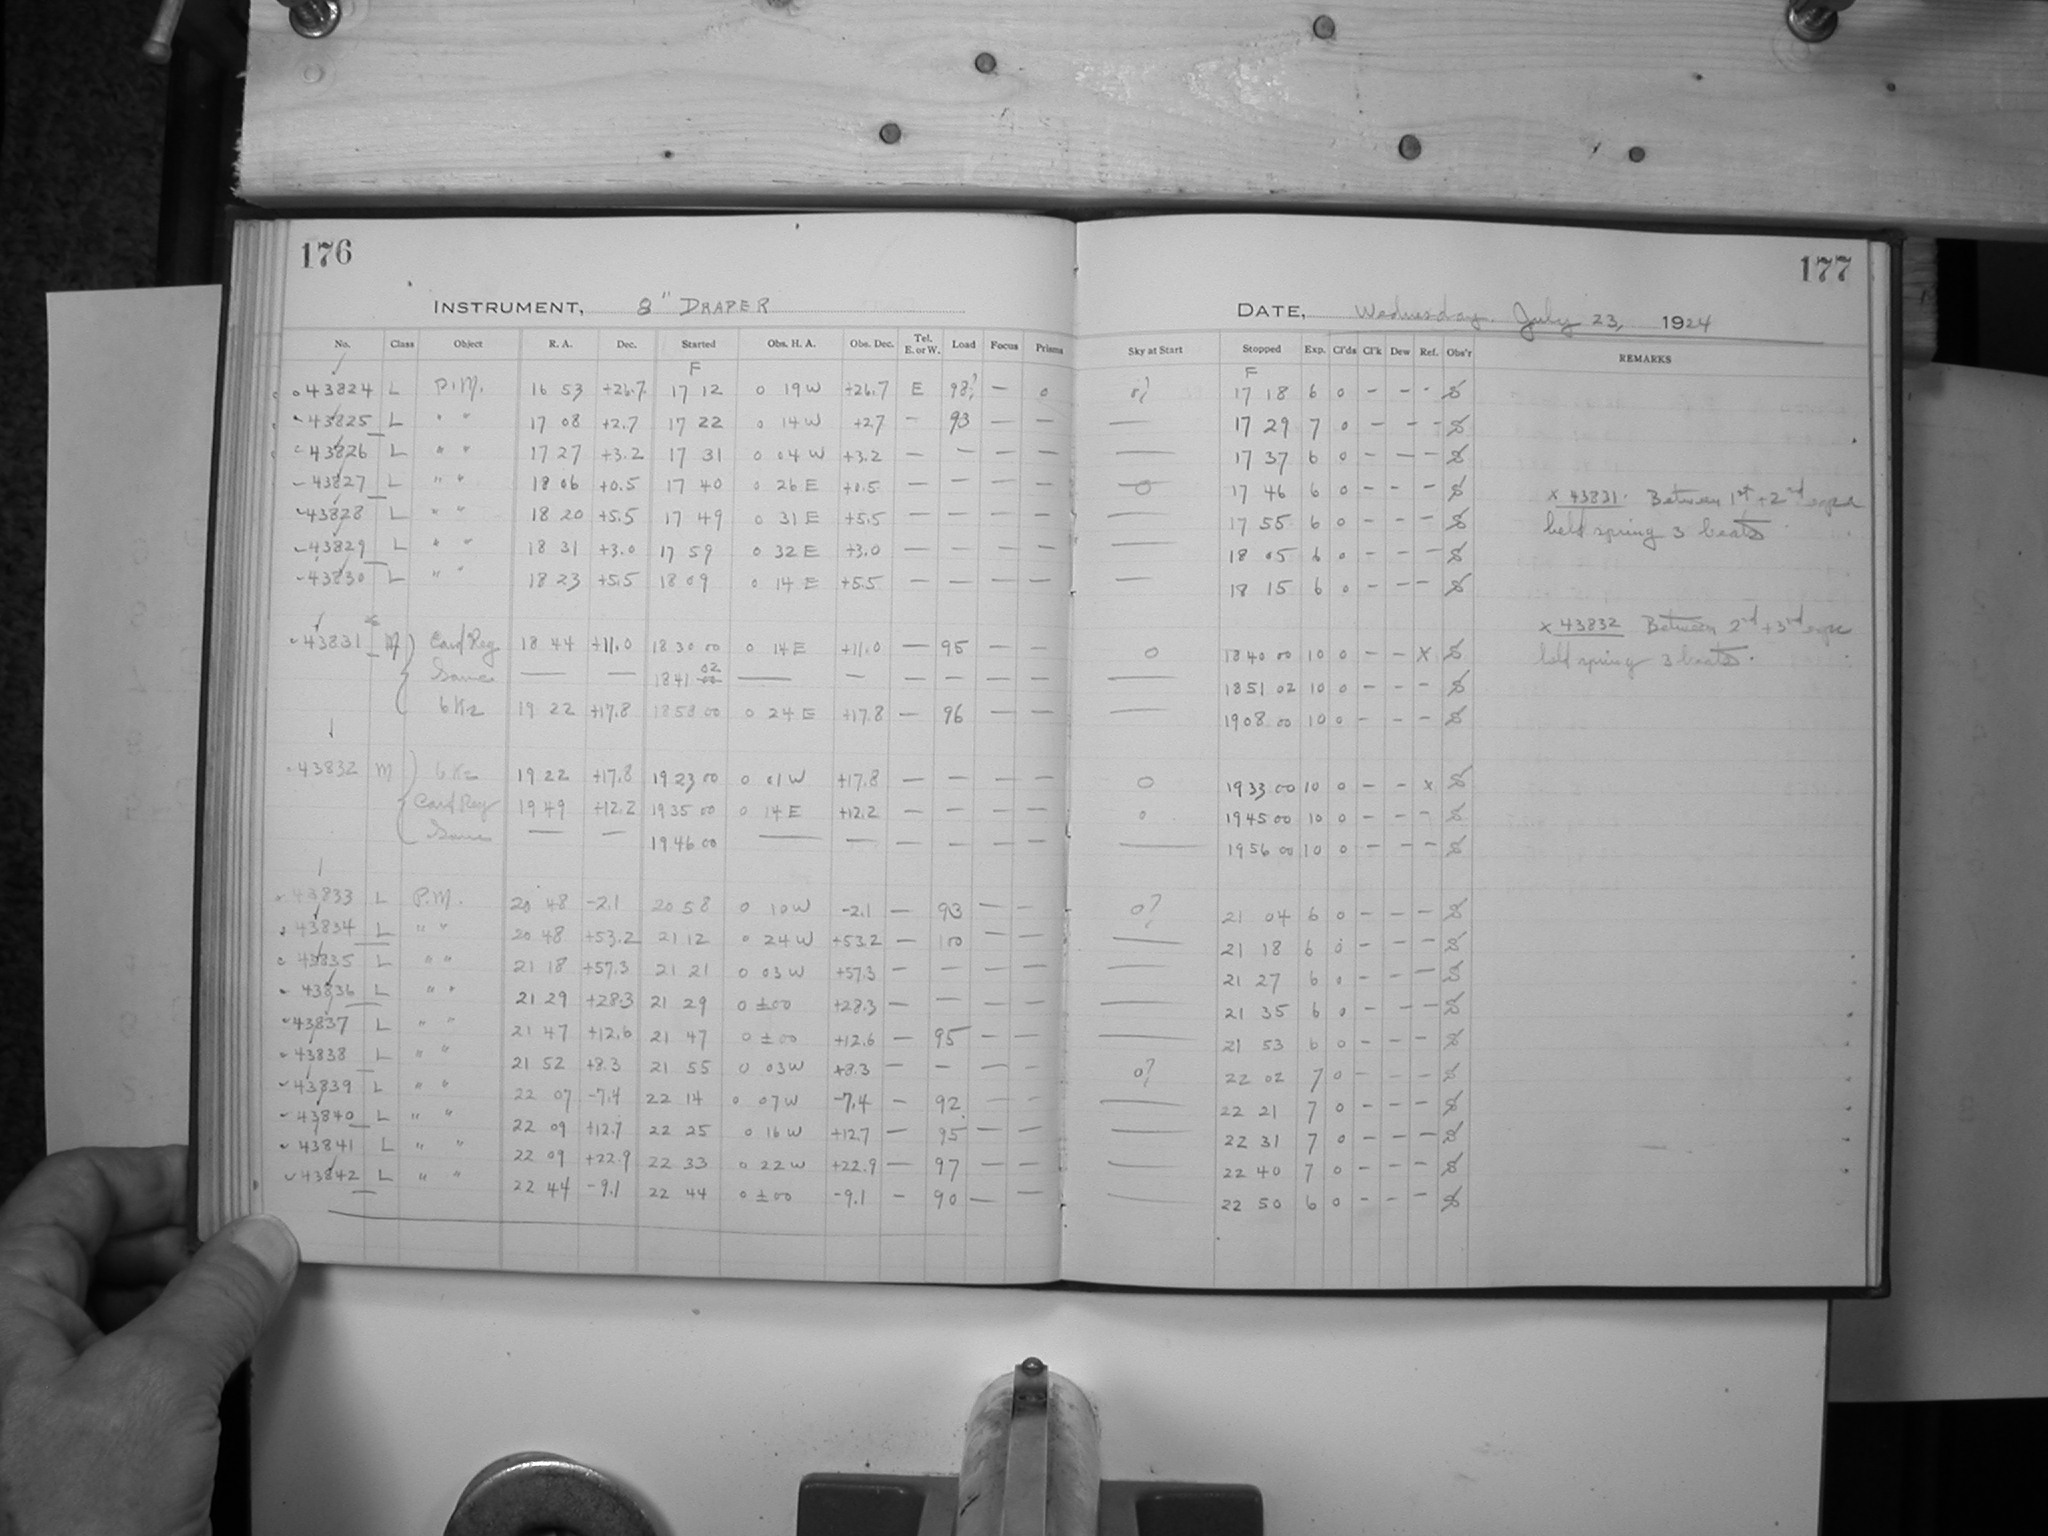 176
INSTRUMENT, 8" DRAPER
No. Class Object R. A. Dec. Started Obs. H. A. Obs. Dec. Tel. E. or W. Load Focus Prisms
F
43824 L P.M. 16 53 +26.7 17 12 0 19 W +26.7 E 98? — 0
43825 L " " 17 08 +2.7 17 22 0 14 W +2.7 — 93 — —
43826 L " " 17 27 +3.2 17 31 0 04 W +3.2 — — — —
43827 L " " 18 06 +0.5 17 40 0 26 E +0.5 — — — —
43828 L " " 18 20 +5.5 17 49 0 31 E +5.5 — — — —
43829 L " " 18 31 +3.0 17 59 0 32 E +3.0 — — — —
43830 L " " 18 23 +5.5 18 09 0 14 E +5.5 — — — —
x
43831 M Card Reg 18 44 +11.0 18 30 00 0 14 E +11.0 — 95 — —
Same — — 18 41 02 — — — — — —
6 Kz 19 22 +17.8 18 58 00 0 24 E +17.8 — 96 — —
43832 M 6 Kz 19 22 +17.8 19 23 00 0 01 W +17.8 — — — —
Card Reg 19 49 +12.2 19 35 00 0 14 E +12.2 — — — —
Same — — 19 46 00 — — — — — —
43833 L P.M. 20 48 -2.1 20 58 0 10 W -2.1 — 93 — —
43834 L " " 20 48 +53.2 21 12 0 24 W +53.2 — 100 — —
43835 L " " 21 18 +57.3 21 21 0 03 W +57.3 — — — —
43836 L " " 21 29 +28.3 21 29 0 ±00 +28.3 — — — —
43837 L " " 21 47 +12.6 21 47 0 ±00 +12.6 — 95 — —
43838 L " " 21 52 +8.3 21 55 0 03 W +8.3 — — — —
43839 L " " 22 07 -7.4 22 14 0 07 W -7.4 — 92 — —
43840 L " " 22 09 +12.7 22 25 0 16 W +12.7 — 95 — —
43841 L " " 22 09 +22.9 22 33 0 22 W +22.9 — 97 — —
43842 L " " 22 44 -9.1 22 44 0 ±00 -9.1 — 90 — —
177
DATE, Wednesday. July 23, 1924
Sky at Start Stopped Exp. Cl'ds Cl'k Dew Ref. Obs'r REMARKS
F
0? 17 18 6 0 — — —
— 17 29 7 0 — — —
— 17 37 6 0 — — —
0 17 46 6 0 — — —
— 17 55 6 0 — — —
— 18 05 6 0 — — —
— 18 15 6 0 — — —
0 18 40 00 10 0 — — x
— 18 51 02 10 0 — — —
— 19 08 00 10 0 — — —
0 19 33 00 10 0 — — x
0 19 45 00 10 0 — — —
— 19 56 00 10 0 — — —
0? 21 04 6 0 — — —
— 21 18 6 0 — — —
— 21 27 6 0 — — —
— 21 35 6 0 — — —
— 21 53 6 0 — — —
0? 22 02 7 0 — — —
— 22 21 7 0 — — —
— 22 31 7 0 — — —
— 22 40 7 0 — — —
— 22 50 6 0 — — —
x 43831. Between 1st + 2nd expe
held spring 3 beats
x 43832 Between 2nd + 3rd expe
held spring 3 beats.